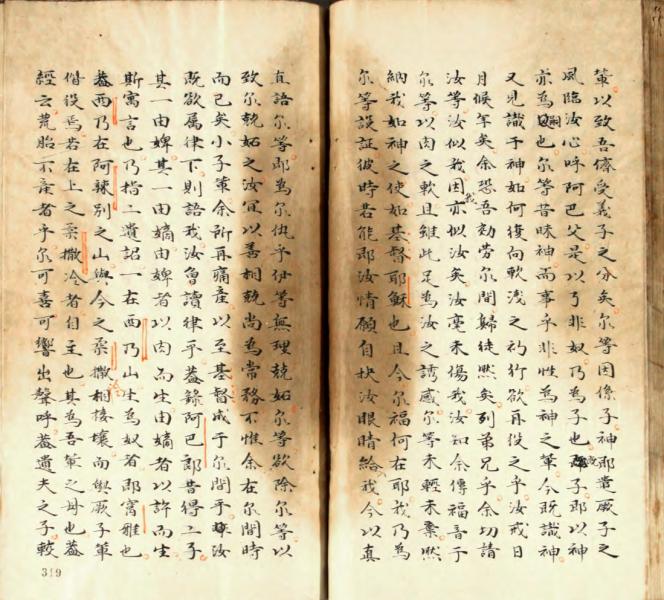 輩以致吾儕受義子之分矣尔等因係子神即遣厥子之
風臨汝心呼阿巴父是以乃非奴乃為子也既子即以神
亦為嗣也尔等昔昧神而事乎非性為神之輩今既識神
又見識于神如何復向軟浅之礿行欲再伇之乎汝戒日
月候年矣余恐吾劾勞尔間歸徒然矣列弟兄乎余切請
汝等汝似我因我亦似汝矣汝毫未傷我汝知余傳福音于
尔等以肉之軟且雖此足為汝之誘感尔等未輕未棄然
納我如神之使如基督耶穌也且今尔福何在耶我乃為
尔等証彼時若能即汝情願自抉汝眼睛給我今以真
直語尔等即為尔仇乎伊等無理競妬尔等欲除尔等以
致尔競妬之汝宜以善相競尚為常務不惟余在尔間時
而已矣小子輩余所再痛産以至基督成于尔間乎汝
既欲属律下則語我汝曾讀律乎蓋錄阿巴郎昔得二子
其一由婢其一由嫡由婢者以肉而生由嫡者以許而生
斯寓言也乃指二遺詔一在西乃山生為奴者即寓雅也
蓋西乃在阿辣別之山與今之柔撒冷相接壤而與厥子輩
偕役焉若在上之柔撒冷者自主也其為吾輩之母也蓋
經云荒胎不産者乎尔可喜可響出聲呼蓋遺夫之子較
319